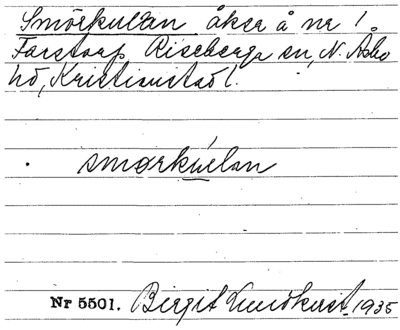 Smörkullan åker å nr 1
Färstorp Riseberga sn, N. Åsbo
hd, Kristianstad l.
smørkúelan
Nr 5501. Birgit Lundkvist 1935